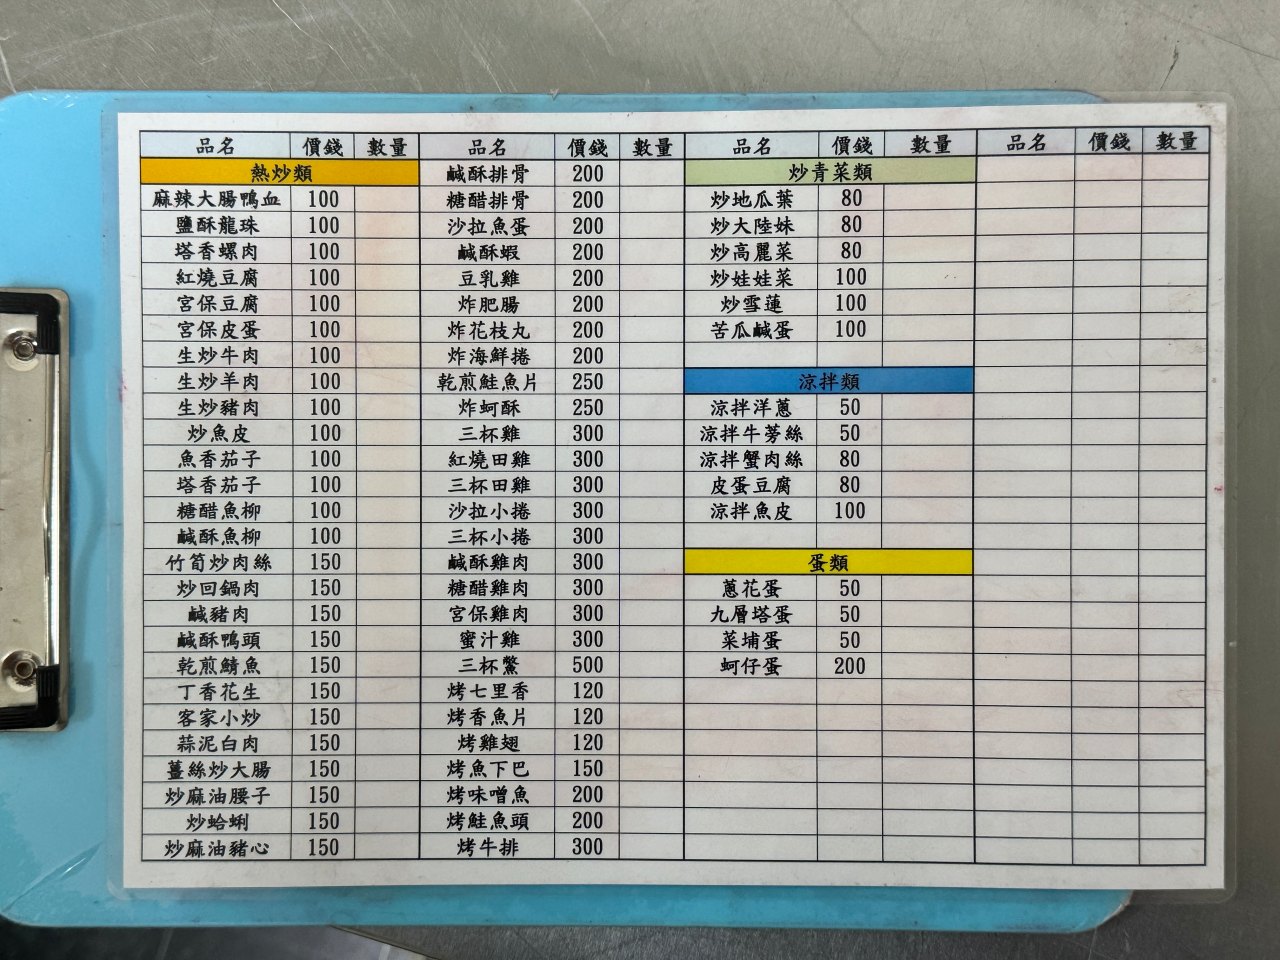 品名 價錢 數量 品名 價錢 數量 品名 價錢 數量 品名 價錢 數量
熱炒類 鹹酥排骨 200 炒青菜類
麻辣大腸鴨血 100 糖醋排骨 200 炒地瓜葉 80
鹽酥龍珠 100 沙拉魚蛋 200 炒大陸妹 80
塔香螺肉 100 鹹酥蝦 200 炒高麗菜 80
紅燒豆腐 100 豆乳雞 200 炒娃娃菜 100
宮保豆腐 100 炸肥腸 200 炒雪蓮 100
宮保皮蛋 100 炸花枝丸 200 苦瓜鹹蛋 100
生炒牛肉 100 炸海鮮捲 200
生炒羊肉 100 乾煎鮭魚片 250 涼拌類
生炒豬肉 100 炸蚵酥 250 涼拌洋蔥 50
炒魚皮 100 三杯雞 300 涼拌牛蒡絲 50
魚香茄子 100 紅燒田雞 300 涼拌蟹肉絲 80
塔香茄子 100 三杯田雞 300 皮蛋豆腐 80
糖醋魚柳 100 沙拉小捲 300 涼拌魚皮 100
鹹酥魚柳 100 三杯小捲 300
竹筍炒肉絲 150 鹹酥雞肉 300 蛋類
炒回鍋肉 150 糖醋雞肉 300 蔥花蛋 50
鹹豬肉 150 宮保雞肉 300 九層塔蛋 50
鹹酥鴨頭 150 蜜汁雞 300 菜埔蛋 50
乾煎鯖魚 150 三杯鱉 500 蚵仔蛋 200
丁香花生 150 烤七里香 120
客家小炒 150 烤香魚片 120
蒜泥白肉 150 烤雞翅 120
薑絲炒大腸 150 烤魚下巴 150
炒麻油腰子 150 烤味噌魚 200
炒蛤蜊 150 烤鮭魚頭 200
炒麻油豬心 150 烤牛排 300